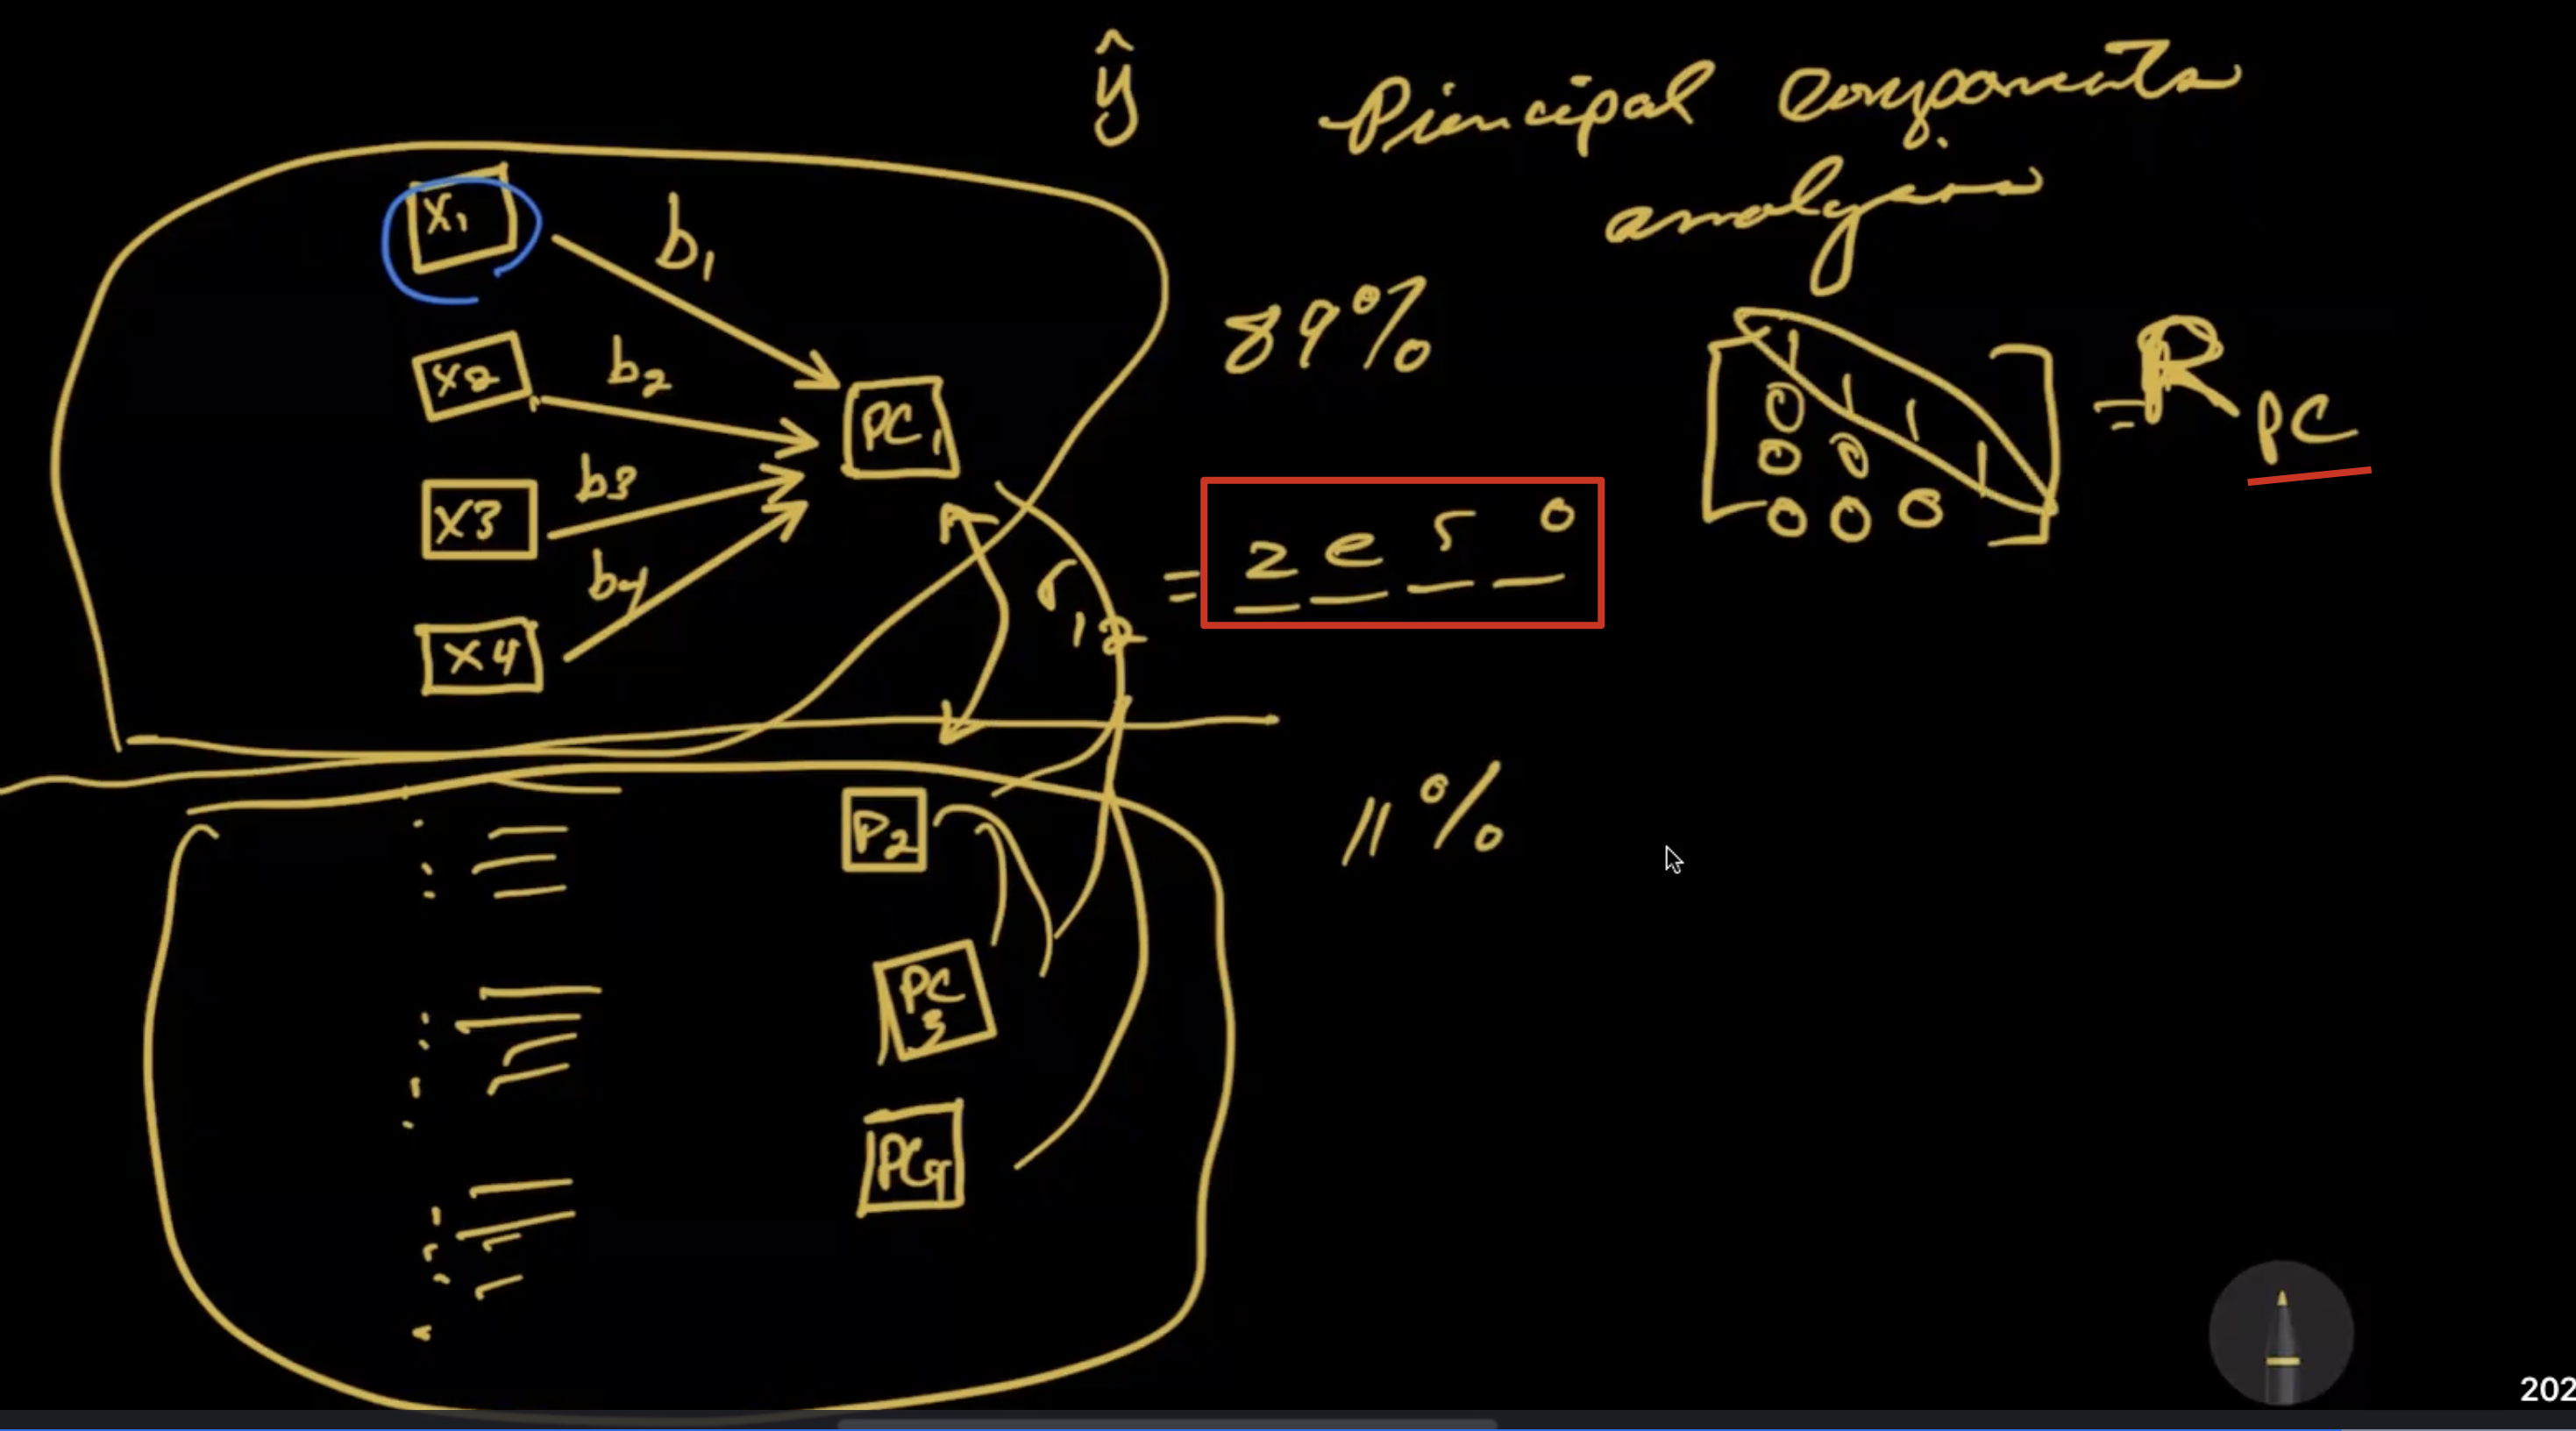 ŷ
Principal components
analysis
X1
b1
X2
b2
X3
b3
X4
b4
PC1
89%
r12 = z e r o
1
0 1
0 0 1
0 0 0 1
= R PC
P2
11%
PC
3
PC4
202